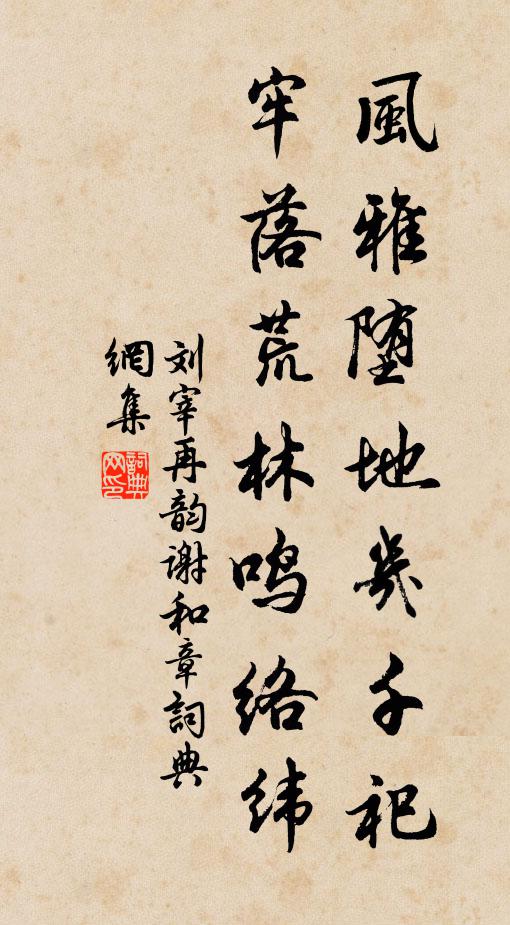 風雅堕地幾千祀
牢落荒林鸣络纬
刘宰再韵谢和章詞典
網集
詞典
网印